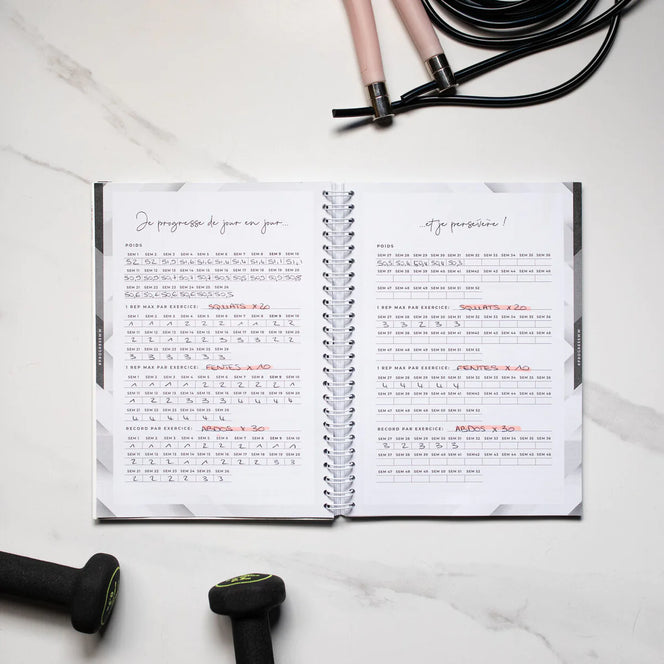 Je progresse de jour en jour...
POIDS
SEM 1 SEM 2 SEM 3 SEM 4 SEM 5 SEM 6 SEM 7 SEM 8 SEM 9 SEM 10
52 52
SEM 11 SEM 12 SEM 13 SEM 14 SEM 15 SEM 16 SEM 17 SEM 18 SEM 19 SEM 20
SEM 21 SEM 22 SEM 23 SEM 24 SEM 25 SEM 26
1 REP MAX PAR EXERCICE: SQUATS x 20
SEM 1 SEM 2 SEM 3 SEM 4 SEM 5 SEM 6 SEM 7 SEM 8 SEM 9 SEM 10
1 1 1 2 2 2 1 1 2 2
SEM 11 SEM 12 SEM 13 SEM 14 SEM 15 SEM 16 SEM 17 SEM 18 SEM 19 SEM 20
SEM 21 SEM 22 SEM 23 SEM 24 SEM 25 SEM 26
3 3 3 3 3 3
1 REP MAX PAR EXERCICE: FENTES x 10
SEM 1 SEM 2 SEM 3 SEM 4 SEM 5 SEM 6 SEM 7 SEM 8 SEM 9 SEM 10
SEM 11 SEM 12 SEM 13 SEM 14 SEM 15 SEM 16 SEM 17 SEM 18 SEM 19 SEM 20
1 2 2 3 3 3 4 4 4 4
SEM 21 SEM 22 SEM 23 SEM 24 SEM 25 SEM 26
4 4 4 4 4 4
RECORD PAR EXERCICE: ABDOS x 30
SEM 1 SEM 2 SEM 3 SEM 4 SEM 5 SEM 6 SEM 7 SEM 8 SEM 9 SEM 10
SEM 11 SEM 12 SEM 13 SEM 14 SEM 15 SEM 16 SEM 17 SEM 18 SEM 19 SEM 20
2 2 2 1 1 2 2 2 3 3
SEM 21 SEM 22 SEM 23 SEM 24 SEM 25 SEM 26
2 2 2 2 3 3
...et je persévère !
POIDS
SEM 27 SEM 28 SEM 29 SEM 30 SEM 31 SEM 32 SEM 33 SEM 34 SEM 35 SEM 36
SEM 37 SEM 38 SEM 39 SEM 40 SEM 41 SEM 42 SEM 43 SEM 44 SEM 45 SEM 46
SEM 47 SEM 48 SEM 49 SEM 50 SEM 51 SEM 52
1 REP MAX PAR EXERCICE: SQUATS x 20
SEM 27 SEM 28 SEM 29 SEM 30 SEM 31 SEM 32 SEM 33 SEM 34 SEM 35 SEM 36
3 3 2 3 3
SEM 37 SEM 38 SEM 39 SEM 40 SEM 41 SEM 42 SEM 43 SEM 44 SEM 45 SEM 46
SEM 47 SEM 48 SEM 49 SEM 50 SEM 51 SEM 52
1 REP MAX PAR EXERCICE: FENTES x 10
SEM 27 SEM 28 SEM 29 SEM 30 SEM 31 SEM 32 SEM 33 SEM 34 SEM 35 SEM 36
4 4 4 4 4
SEM 37 SEM 38 SEM 39 SEM 40 SEM 41 SEM 42 SEM 43 SEM 44 SEM 45 SEM 46
SEM 47 SEM 48 SEM 49 SEM 50 SEM 51 SEM 52
RECORD PAR EXERCICE: ABDOS x 30
SEM 27 SEM 28 SEM 29 SEM 30 SEM 31 SEM 32 SEM 33 SEM 34 SEM 35 SEM 36
3 2 3 3 3
SEM 37 SEM 38 SEM 39 SEM 40 SEM 41 SEM 42 SEM 43 SEM 44 SEM 45 SEM 46
SEM 47 SEM 48 SEM 49 SEM 50 SEM 51 SEM 52